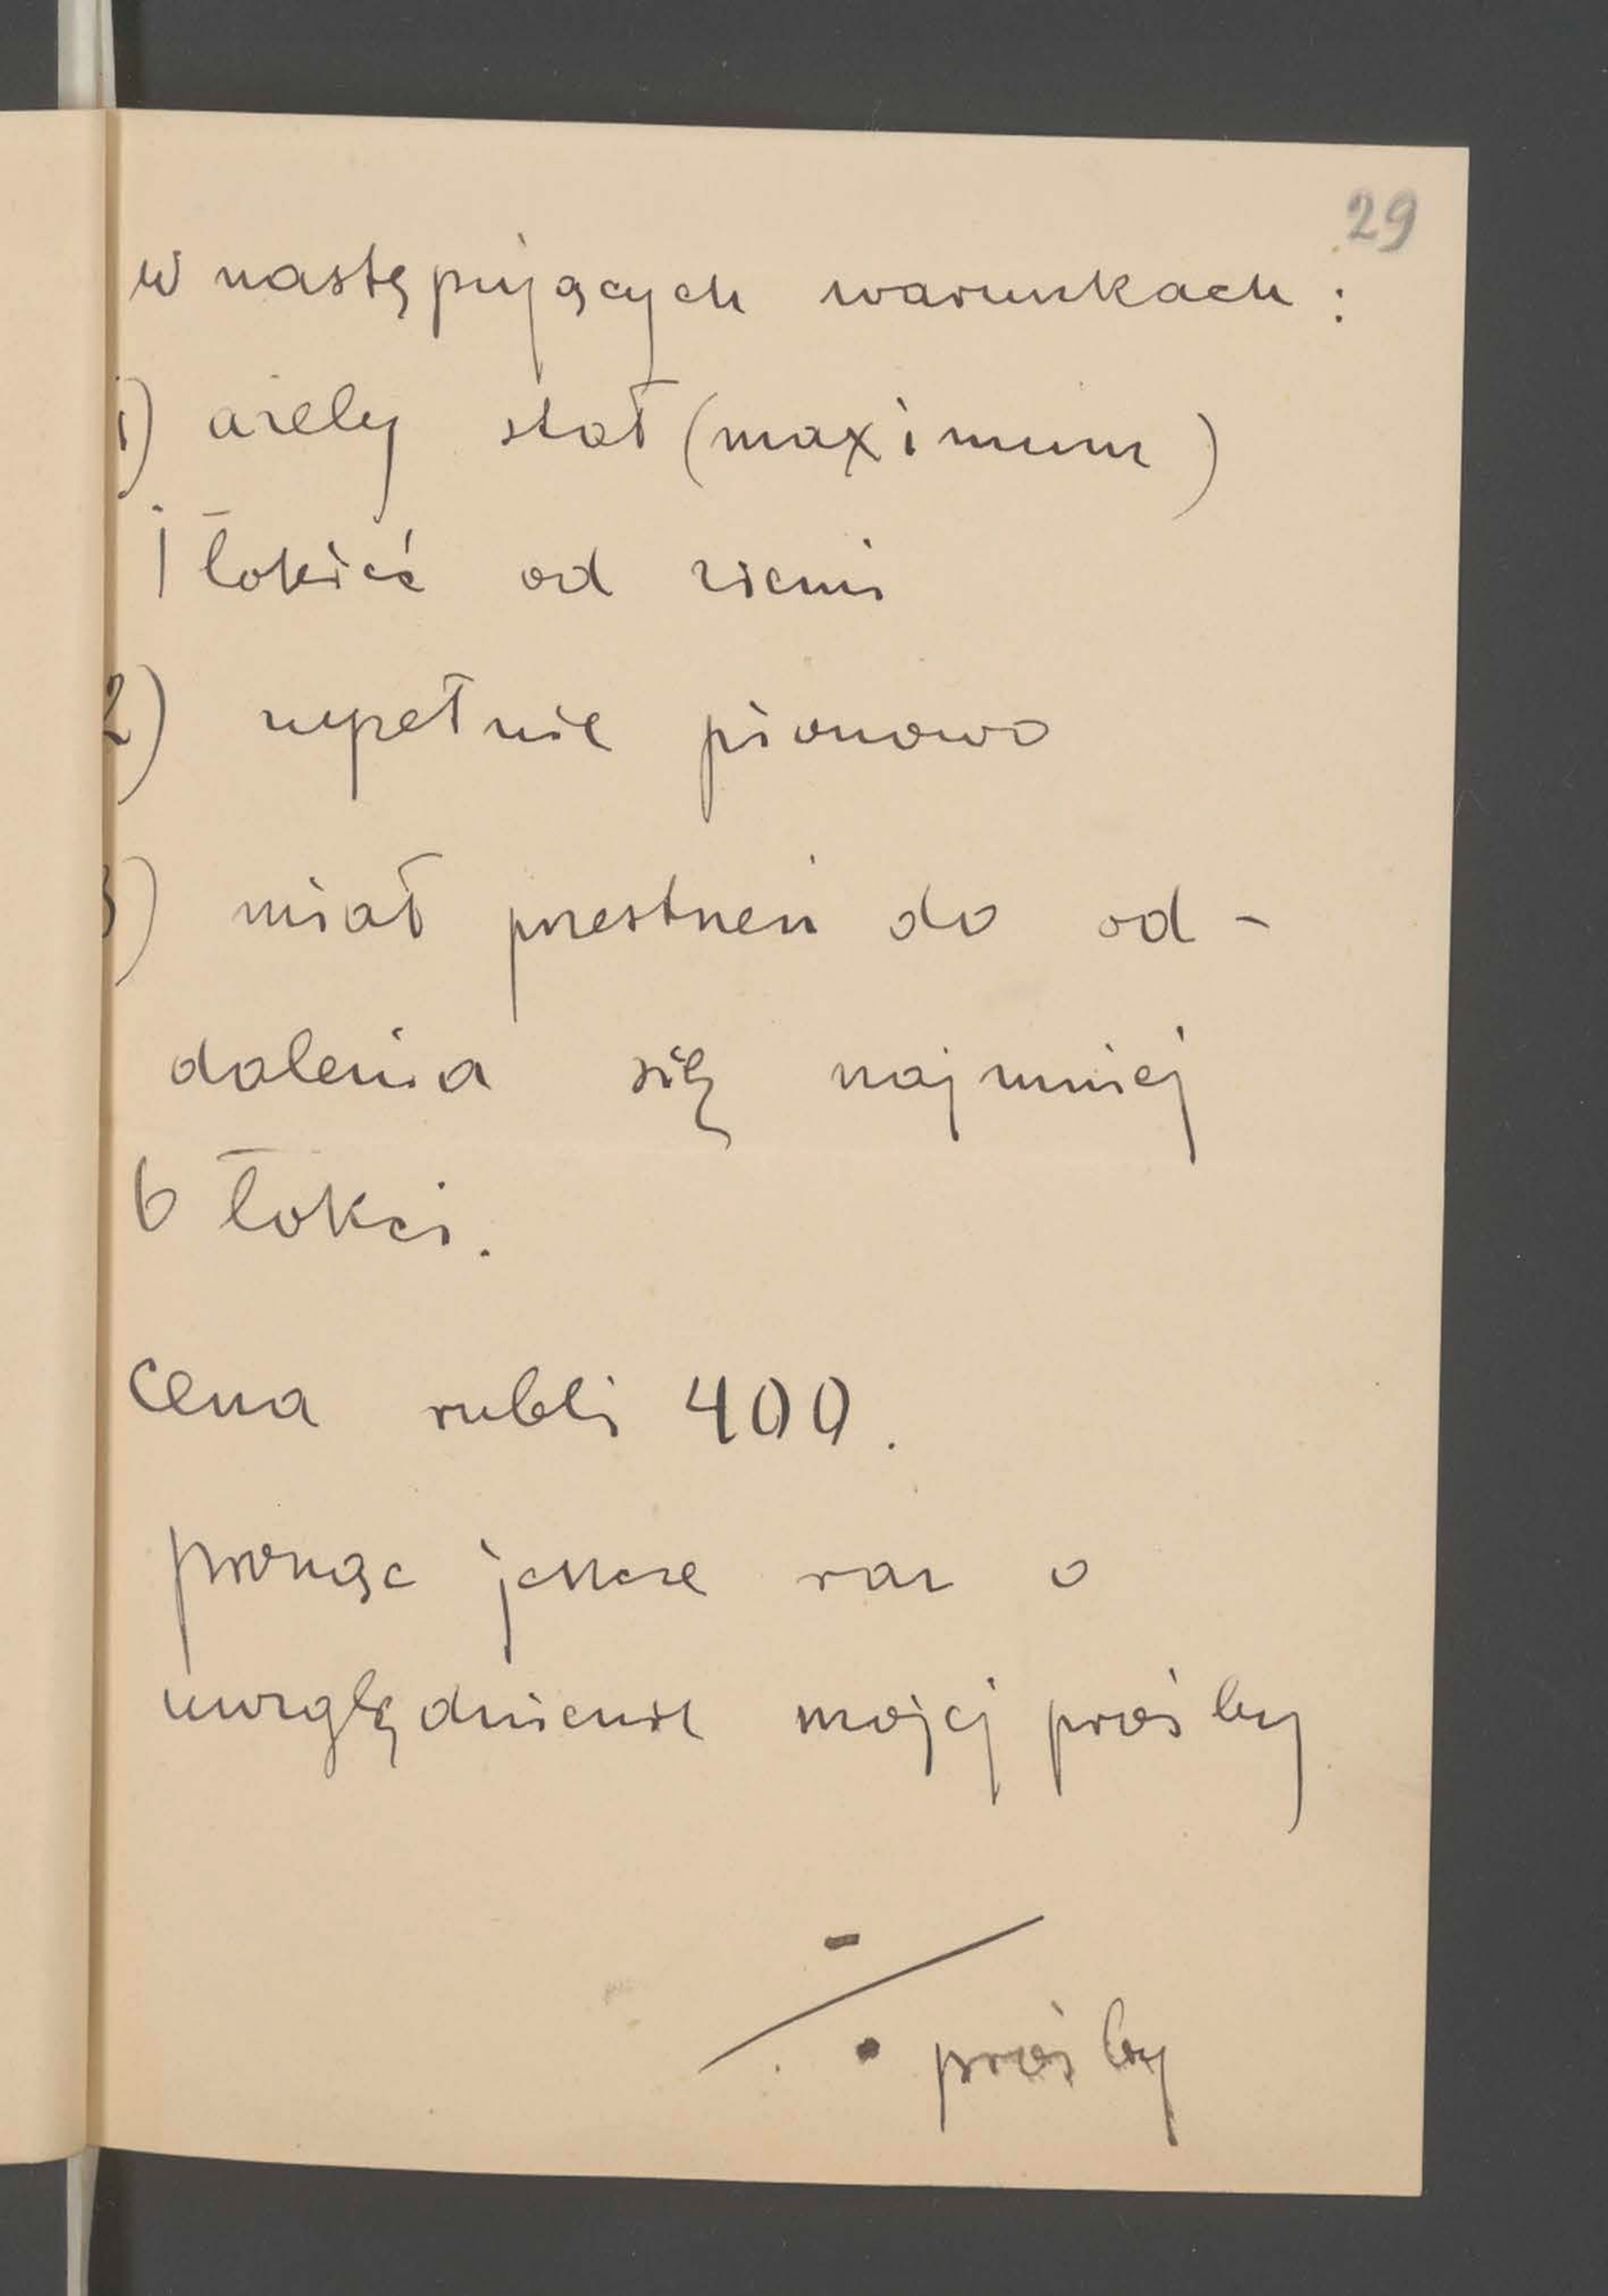 29
w następujących warunkach :
1) ażeby stał (maximum)
1 łokieć od ziemi
2) zupełnie pionowo
3) miał przestrzeń do od-
dalenia się najmniej
6 łokci.
Cena rubli 400.
prosząc jeszcze raz o
uwzględnienie mojej prośby
prośby